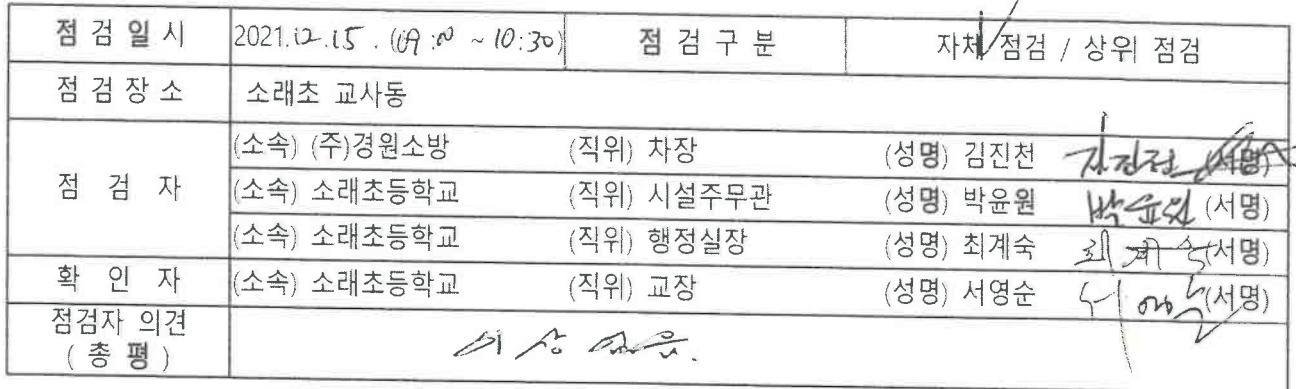 점 검 일 시 2021.12.15. (09:00 ~ 10:30) 점 검 구 분 자체 점검 / 상위 점검
점 검 장 소 소래초 교사동
점 검 자 (소속) (주)경원소방 (직위) 차장 (성명) 김진천 (서명)
(소속) 소래초등학교 (직위) 시설주무관 (성명) 박윤원 박윤원 (서명)
(소속) 소래초등학교 (직위) 행정실장 (성명) 최계숙 최계숙 (서명)
확 인 자 (소속) 소래초등학교 (직위) 교장 (성명) 서영순 (서명)
점검자 의견
( 총 평 ) 이상 없음.